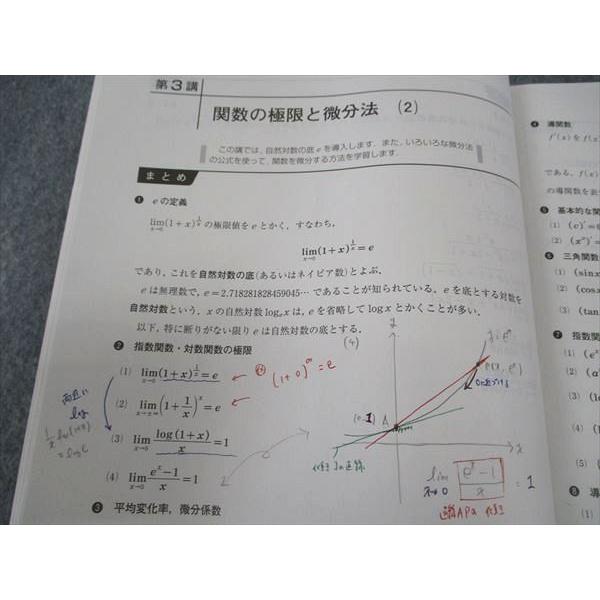 第3講
関数の極限と微分法 (2)
この講では,自然対数の底eを導入します.また,いろいろな微分法
の公式を使って,関数を微分する方法を学習します.
まとめ
❶ eの定義
lim(1+x)^{1/x} の極限値をeとかく.すなわち,
x→0
lim(1+x)^{1/x}=e
x→0
であり,これを自然対数の底(あるいはネイピア数)とよぶ.
eは無理数で,e=2.718281828459045…であることが知られている.eを底とする対数を
自然対数という.xの自然対数log_e xは,eを省略してlog xとかくことが多い.
以下,特に断りがない限りeは自然対数の底とする.
❷ 指数関数・対数関数の極限
(1) lim(1+x)^{1/x}=e
x→0
(1+0)^∞=e
(2) lim(1+1/x)^x=e
x→±∞
(3) lim log(1+x)/x=1
x→0
(4) lim (e^x-1)/x=1
x→0
❸ 平均変化率,微分係数
両辺に
log
(4)
y
y=e^x
A
x
lim e^x-1/x = 1
x→0
❹ 導関数
f'(x)を f(x)
である.f(x)
の導関数を表す
❺ 基本的な関
(1) (c)'=0
(2) (x^n)'=
❻ 三角関数
(1) (sin x
(2) (cos
(3) (tan
❼ 指
(1) (e^x
(2) (a^x
(3)
(4)
(5)
❽ 導
(1)